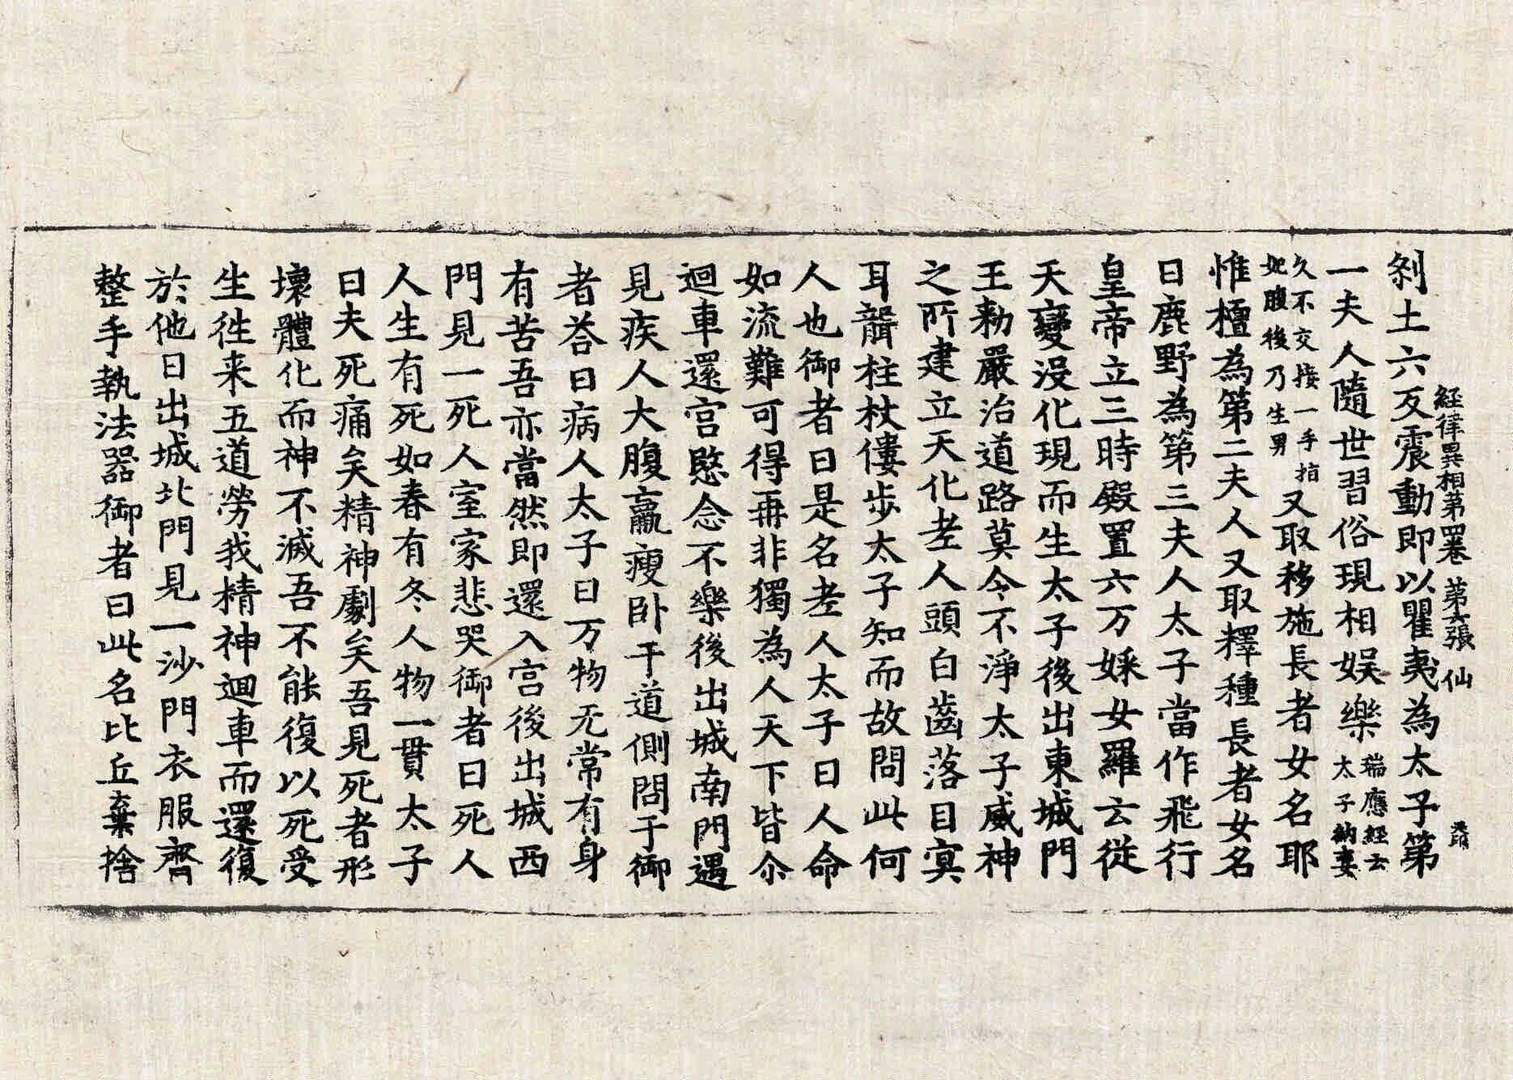 経律異相第四卷 第六張 仙
刹土六反震動即以瞿夷為太子第
一夫人隨世習俗現相娛樂瑞應經云太子納妻
久不交接一手指妃腹後乃生男又取移施長者女名耶
惟檀為第二夫人又取釋種長者女名
曰鹿野為第三夫人太子當作飛行
皇帝立三時殿置六万婇女羅云從
天變沒化現而生太子後出東城門
王勑嚴治道路莫令不淨太子威神
之所建立天化老人頭白齒落目冥
耳聾柱杖僂步太子知而故問此何
人也御者曰是名老人太子曰人命
如流難可得再非獨為人天下皆尒
迴車還宮愍念不樂後出城南門遇
見疾人大腹羸瘦卧于道側問于御
者荅曰病人太子曰万物无常有身
有苦吾亦當然即還入宮後出城西
門見一死人室家悲哭御者曰死人
人生有死如春有冬人物一貫太子
曰夫死痛矣精神劇矣吾見死者形
壞體化而神不滅吾不能復以死受
生往来五道勞我精神迴車而還復
於他日出城北門見一沙門衣服齊
整手執法器御者曰此名比丘棄捨